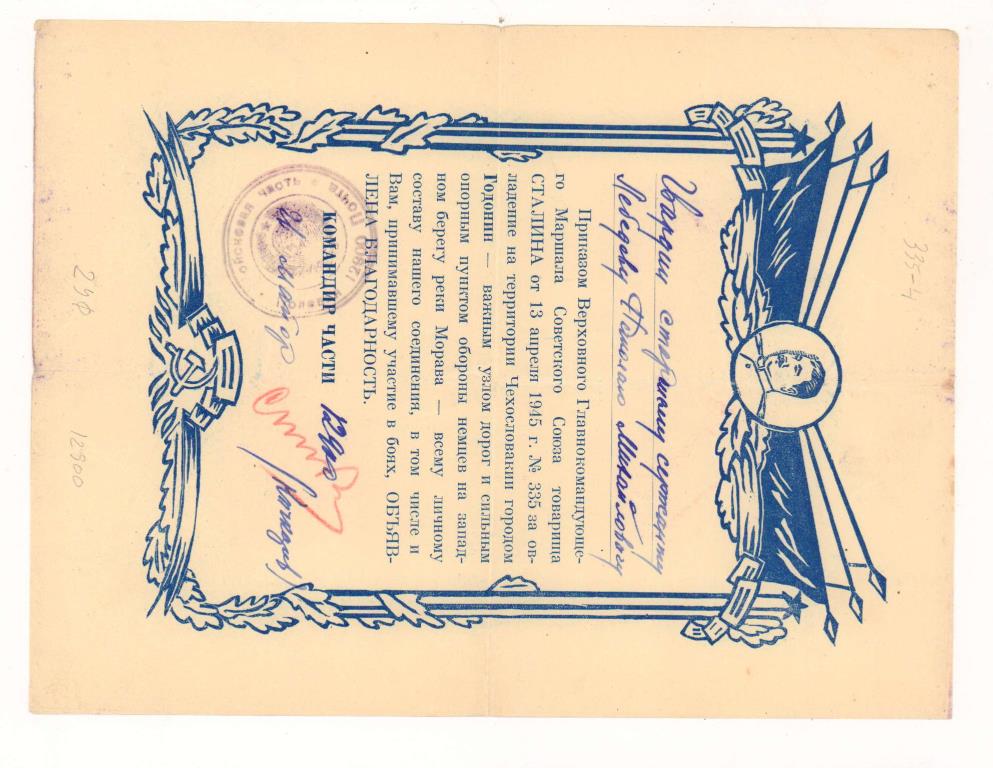 335-4
Гвардии старшему сержанту
Лебедеву Николаю Михайловичу
Приказом Верховного Главнокомандующе-
го Маршала Советского Союза товарища
СТАЛИНА от 13 апреля 1945 г. № 335 за ов-
ладение на территории Чехословакии городом
Годонин — важным узлом дорог и сильным
опорным пунктом обороны немцев на запад-
ном берегу реки Морава — всему личному
составу нашего соединения, в том числе и
Вам, принимавшему участие в боях, ОБ'ЯВ-
ЛЕНА БЛАГОДАРНОСТЬ.
КОМАНДИР ЧАСТИ
майор
часть
Почта
12900